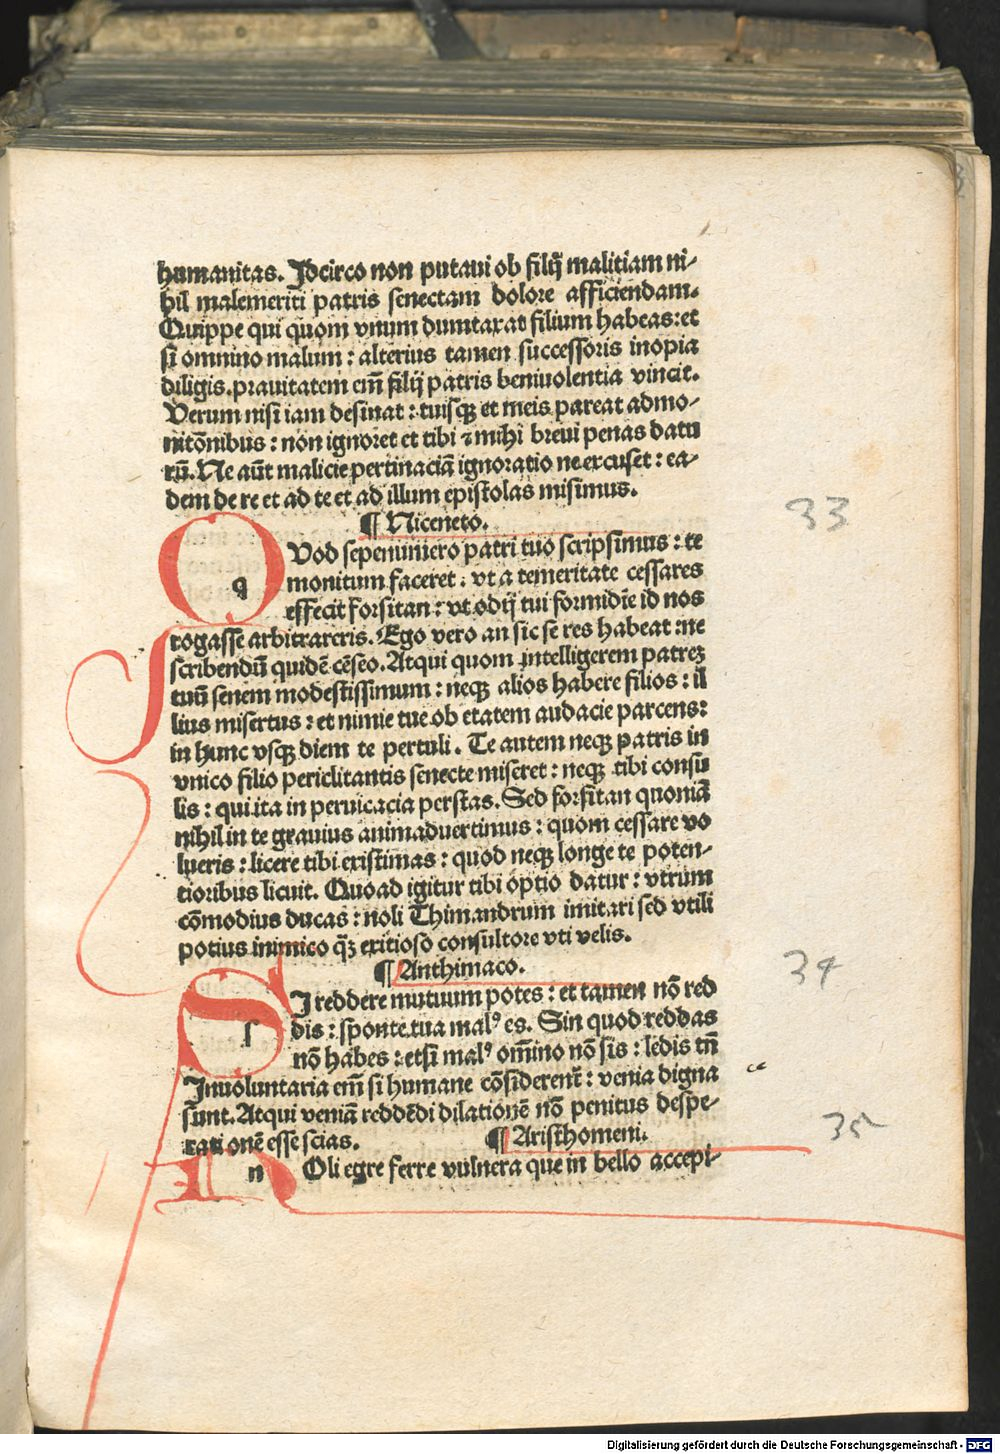 humanitas. Idcirco non putaui ob filij malitiam ni-
hil malemeriti patris senectam dolore afficiendam.
Quippe qui quom vnum dumtaxat filium habeas: et
si omnino malum: alterius tamen successoris inopia
diligis. prauitatem em̄ filij patris beniuolentia vincit.
Verum nisi iam desinat: tuisqꝫ et meis pareat admo-
nitōnibus: non ignoret et tibi ⁊ mihi breui penas datu
rū. Ne aūt malicie pertinaciā ignoratio ne excuset: ea-
dem de re et ad te et ad illum epistolas misimus.
¶ Niceneto.
q Vod sepeniniero patri tuo scripsimus: te
monitum faceret: vt a temeritate cessares
effecit forsitan: vt odij tui formidīe id nos
rogasse arbitrareris. Ego vero an sic se res habeat: ne
scribendū quidē cēseo. Atqui quom intelligerem patreꝫ
tuū senem modestissimum: neqꝫ alios habere filios: il
lius misertus: et nimie tue ob etatem audacie parcens:
in hunc vsqꝫ diem te pertuli. Te autem neqꝫ patris in
vnico filio periclitantis senecte miseret: neqꝫ tibi consu
lis: qui ita in peruicacia perstas. Sed forsitan quoniā
nihil in te grauius animaduertimus: quom cessare vo
lueris: licere tibi existimas: quod neqꝫ longe te poten-
tioribus licuit. Quoad igitur tibi optio datur: vtrum
cōmodius ducas: noli Thimandrum imitari sed vtili
potius inimico qꝫ̄ exitioso consultore vti velis.
33
¶ Anthimaco.
s I reddere mutuum potes: et tamen nō red
dis: sponte tua malꝰ es. Sin quod reddas
nō habes: etsi malꝰ om̄ino nō sis: ledis tn̄
Inuoluntaria em̄ si humane cōsiderent̄: venia digna
sunt. Atqui veniā reddēdi dilationē nō penitus despe-
rationē esse scias.
34
¶ Aristhomeni.
n Oli egre ferre vulnera que in bello accepi-
35
Digitalisierung gefördert durch die Deutsche Forschungsgemeinschaft - DFG